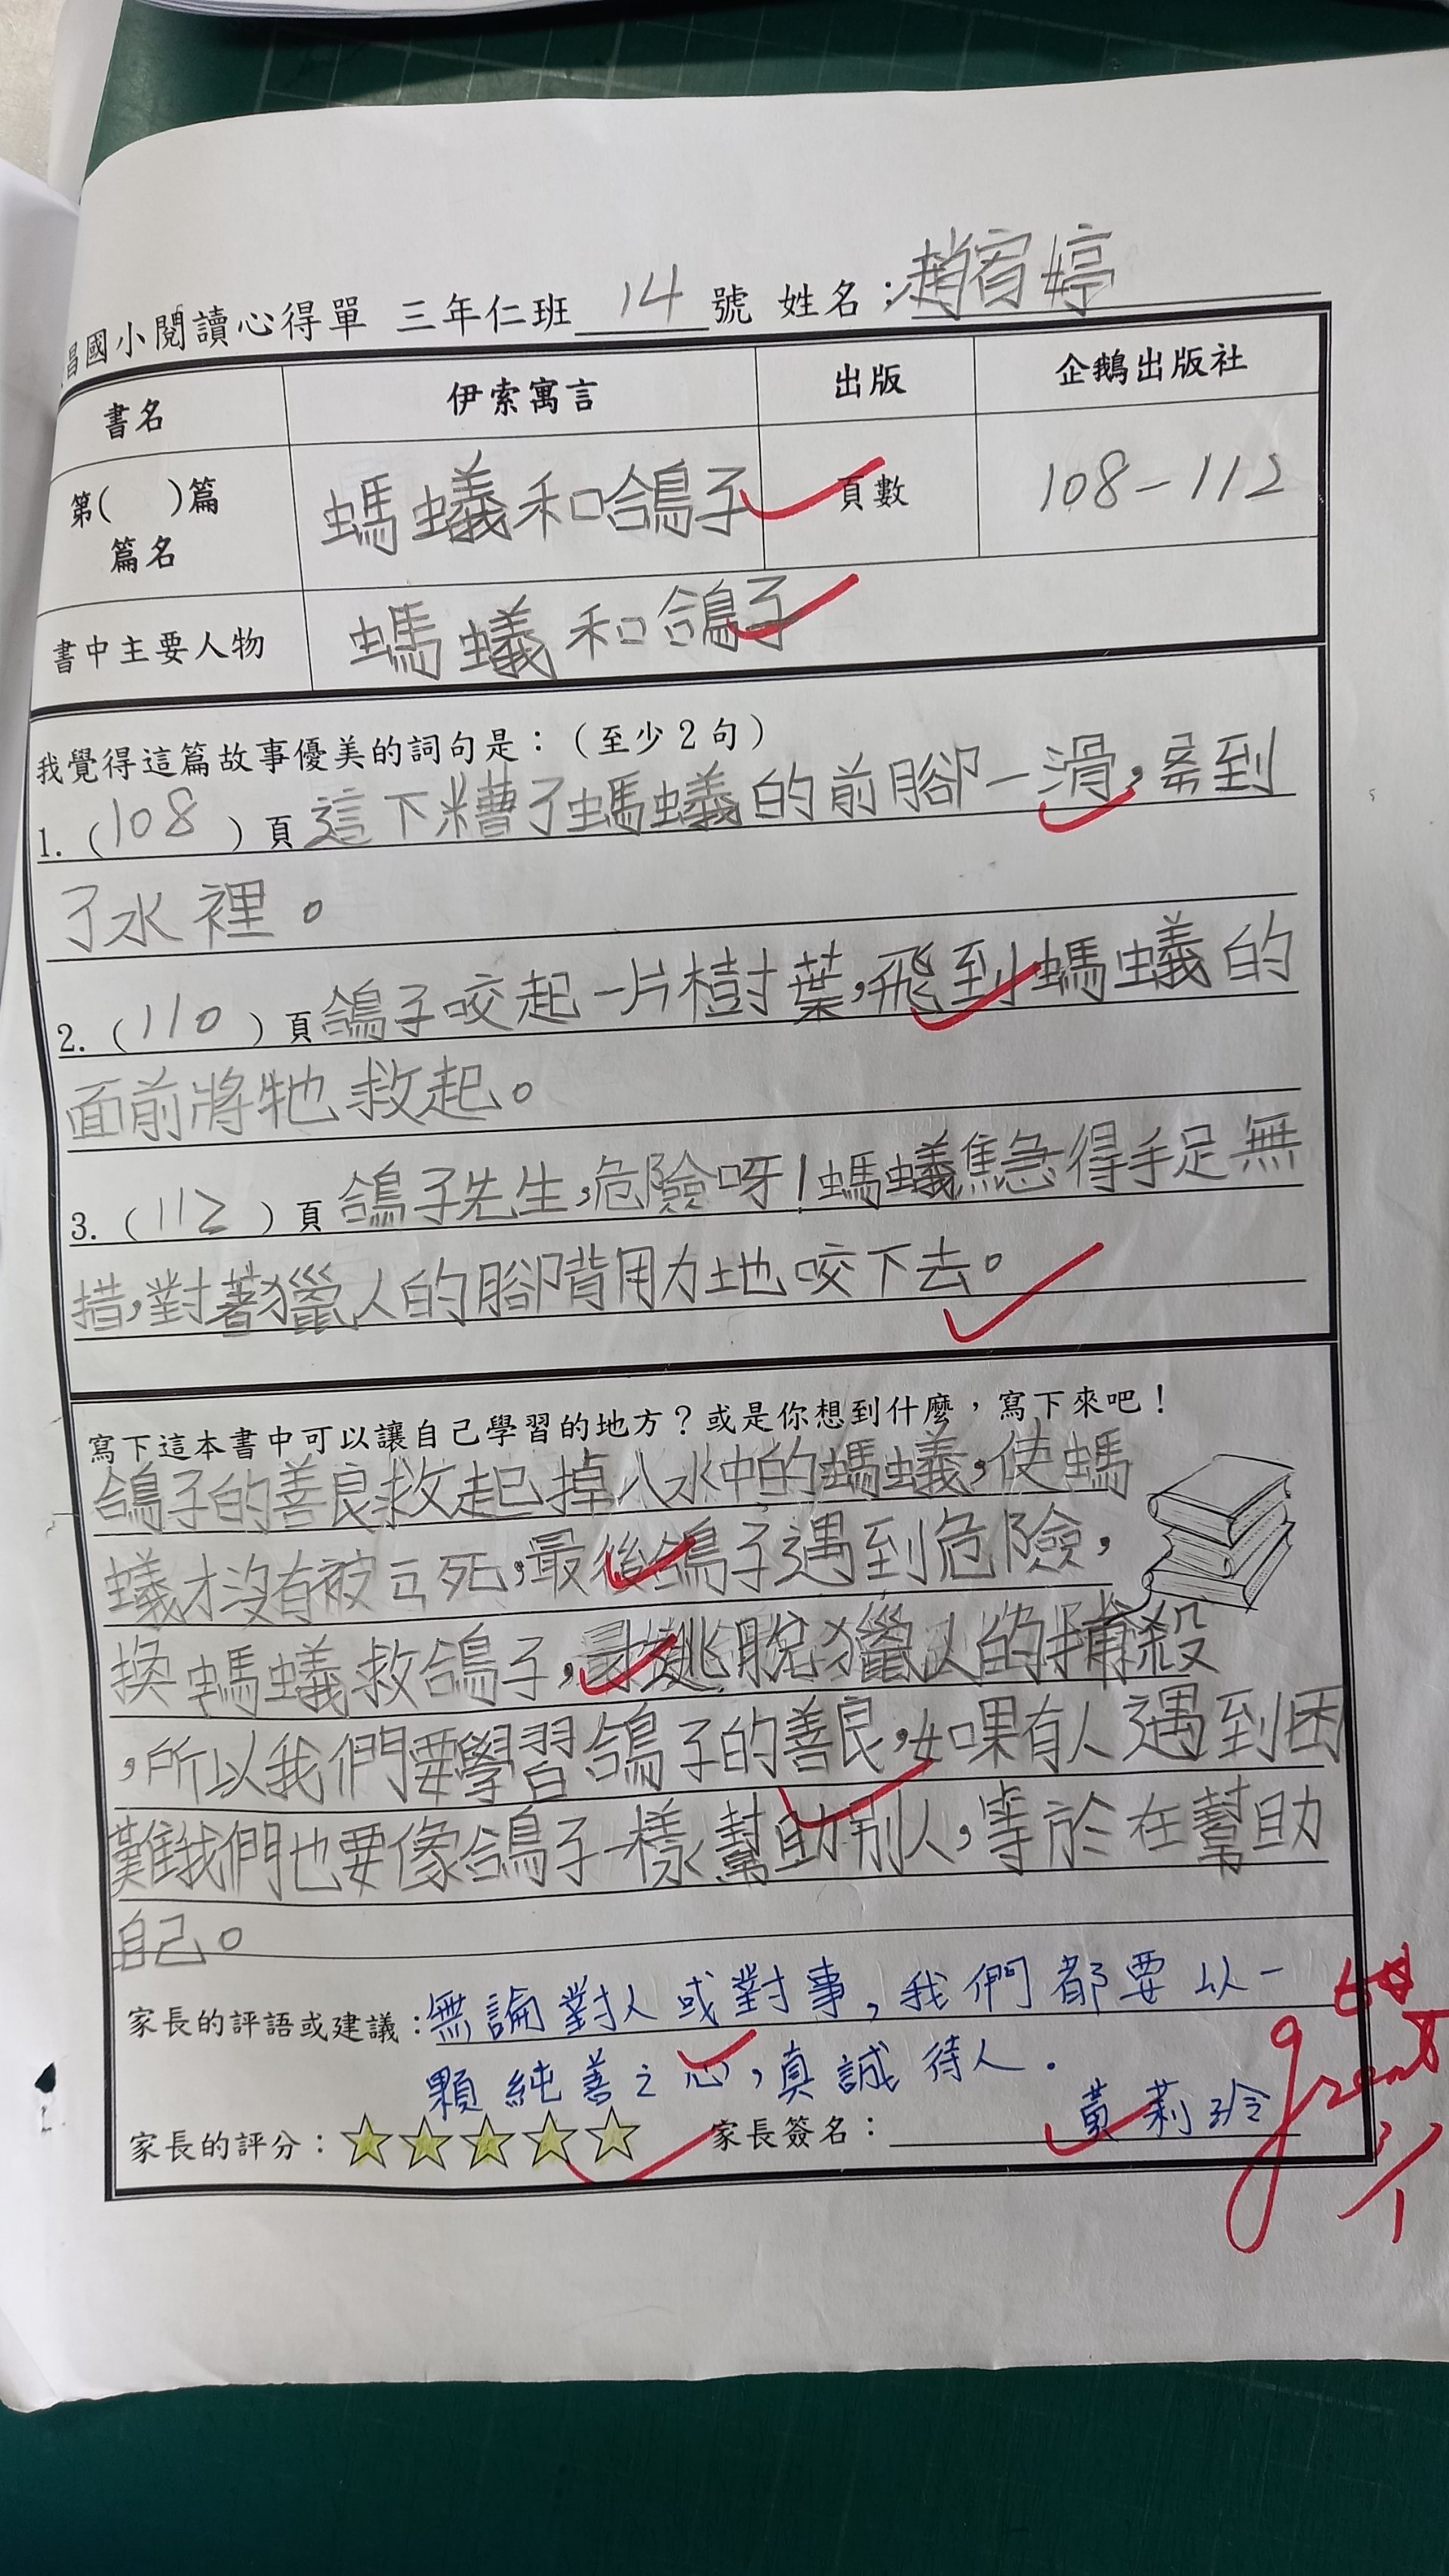 昌國小閱讀心得單 三年仁班 14 號 姓名：趙宥婷
書名 伊索寓言 出版 企鵝出版社
第( )篇 篇名 螞蟻和鴿子 頁數 108-112
書中主要人物 螞蟻和鴿子
我覺得這篇故事優美的詞句是：（至少2句）
1.（108）頁這下糟了螞蟻的前腳一滑，到
了水裡。
2.（110）頁鴿子咬起一片樹葉，飛到螞蟻的
面前將牠救起。
3.（112）頁鴿子先生，危險呀！螞蟻焦急得手足無
措，對著獵人的腳背用力地咬下去。
寫下這本書中可以讓自己學習的地方？或是你想到什麼，寫下來吧！
鴿子的善良救起掉入水中的螞蟻，使螞
蟻才沒有被死，最後鴿子遇到危險，
換螞蟻救鴿子，逃脫獵人的捕殺
，所以我們要學習鴿子的善良，如果有人遇到困
難我們也要像鴿子一樣幫助別人，等於在幫助
自己。
家長的評語或建議：無論對人或對事，我們都要以一
顆純善之心，真誠待人.
家長的評分：☆☆☆☆☆ 家長簽名：黃莉玲
great
3/1